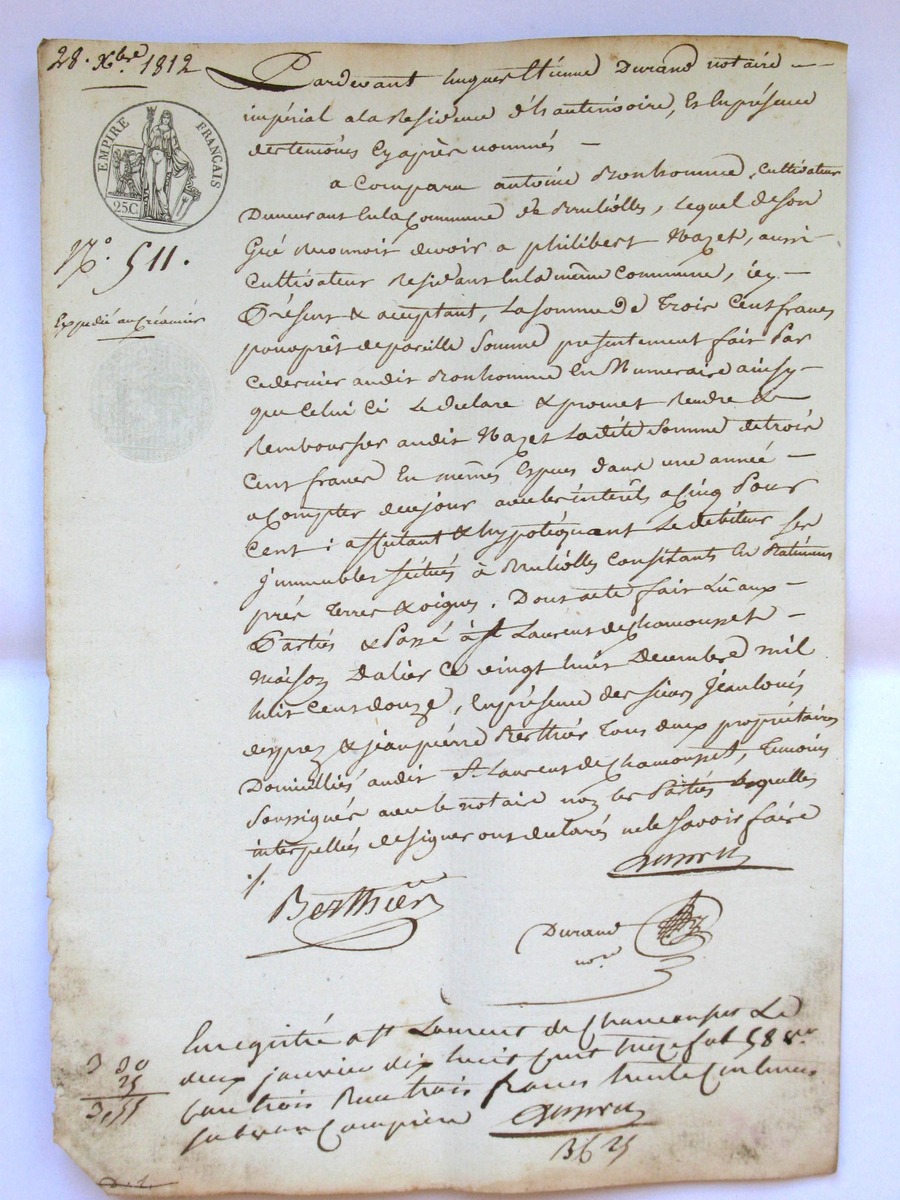 28. Xbre. 1812
EMPIRE FRANÇAIS
25C
N°. 511.
Expédié au Créancier
Pardevant hugues Etienne Durand notaire
impérial a la Residence d'hauterivoire, Et En présence
des temoins Cy après nommés
a Comparu antoine Bonhomme, Cultivateur
Demeurant En la Commune de Brulliolles, Lequel de son
Gré Reconnoit devoir a philibert Nazet, aussi
Cultivateur Residant En la même Commune, icy
Présent & aceptant, La somme de Trois Cent francs
pour prêt de pareille Somme présentement fait Par
ce dernier audit Bonhomme En Numeraire ainsy
que Celui Ci Le declare & promet Rendre &
Rembourser audit Nazet Ladite Somme de trois
Cent francs En mêmes Espèces dans une année
a Compter de ce jour avec les interêts a Cinq Pour
Cent : affectant & hypotéquant Le debiteur ses
jmmeubles situés à Brulliolles Consistants En Batimens
prés Terres & vignes. Dont acte fait Lû aux
Parties & Passé à St Laurent de Chamousset
maison Dalier Ce vingt huit Decembre mil
huit Cent douze, En présence des sieurs Jean Louis
despres & jean pierre Berthier Tous deux propriétaires
Domiciliés audit St. Laurent de Chamousset, Temoins
Soussignés avec le notaire non les Parties Lesquelles
interpellées de signer ont declarés ne le Savoir faire
./.
Berthier
Durand
nore
Enregistré a St Laurent de Chamousset Le
deux janvier dix huit Cent treize fol 58 vo
Case trois Reçu trois francs trente Centimes
Subvon Comprise
3 30
25
3,55
3625